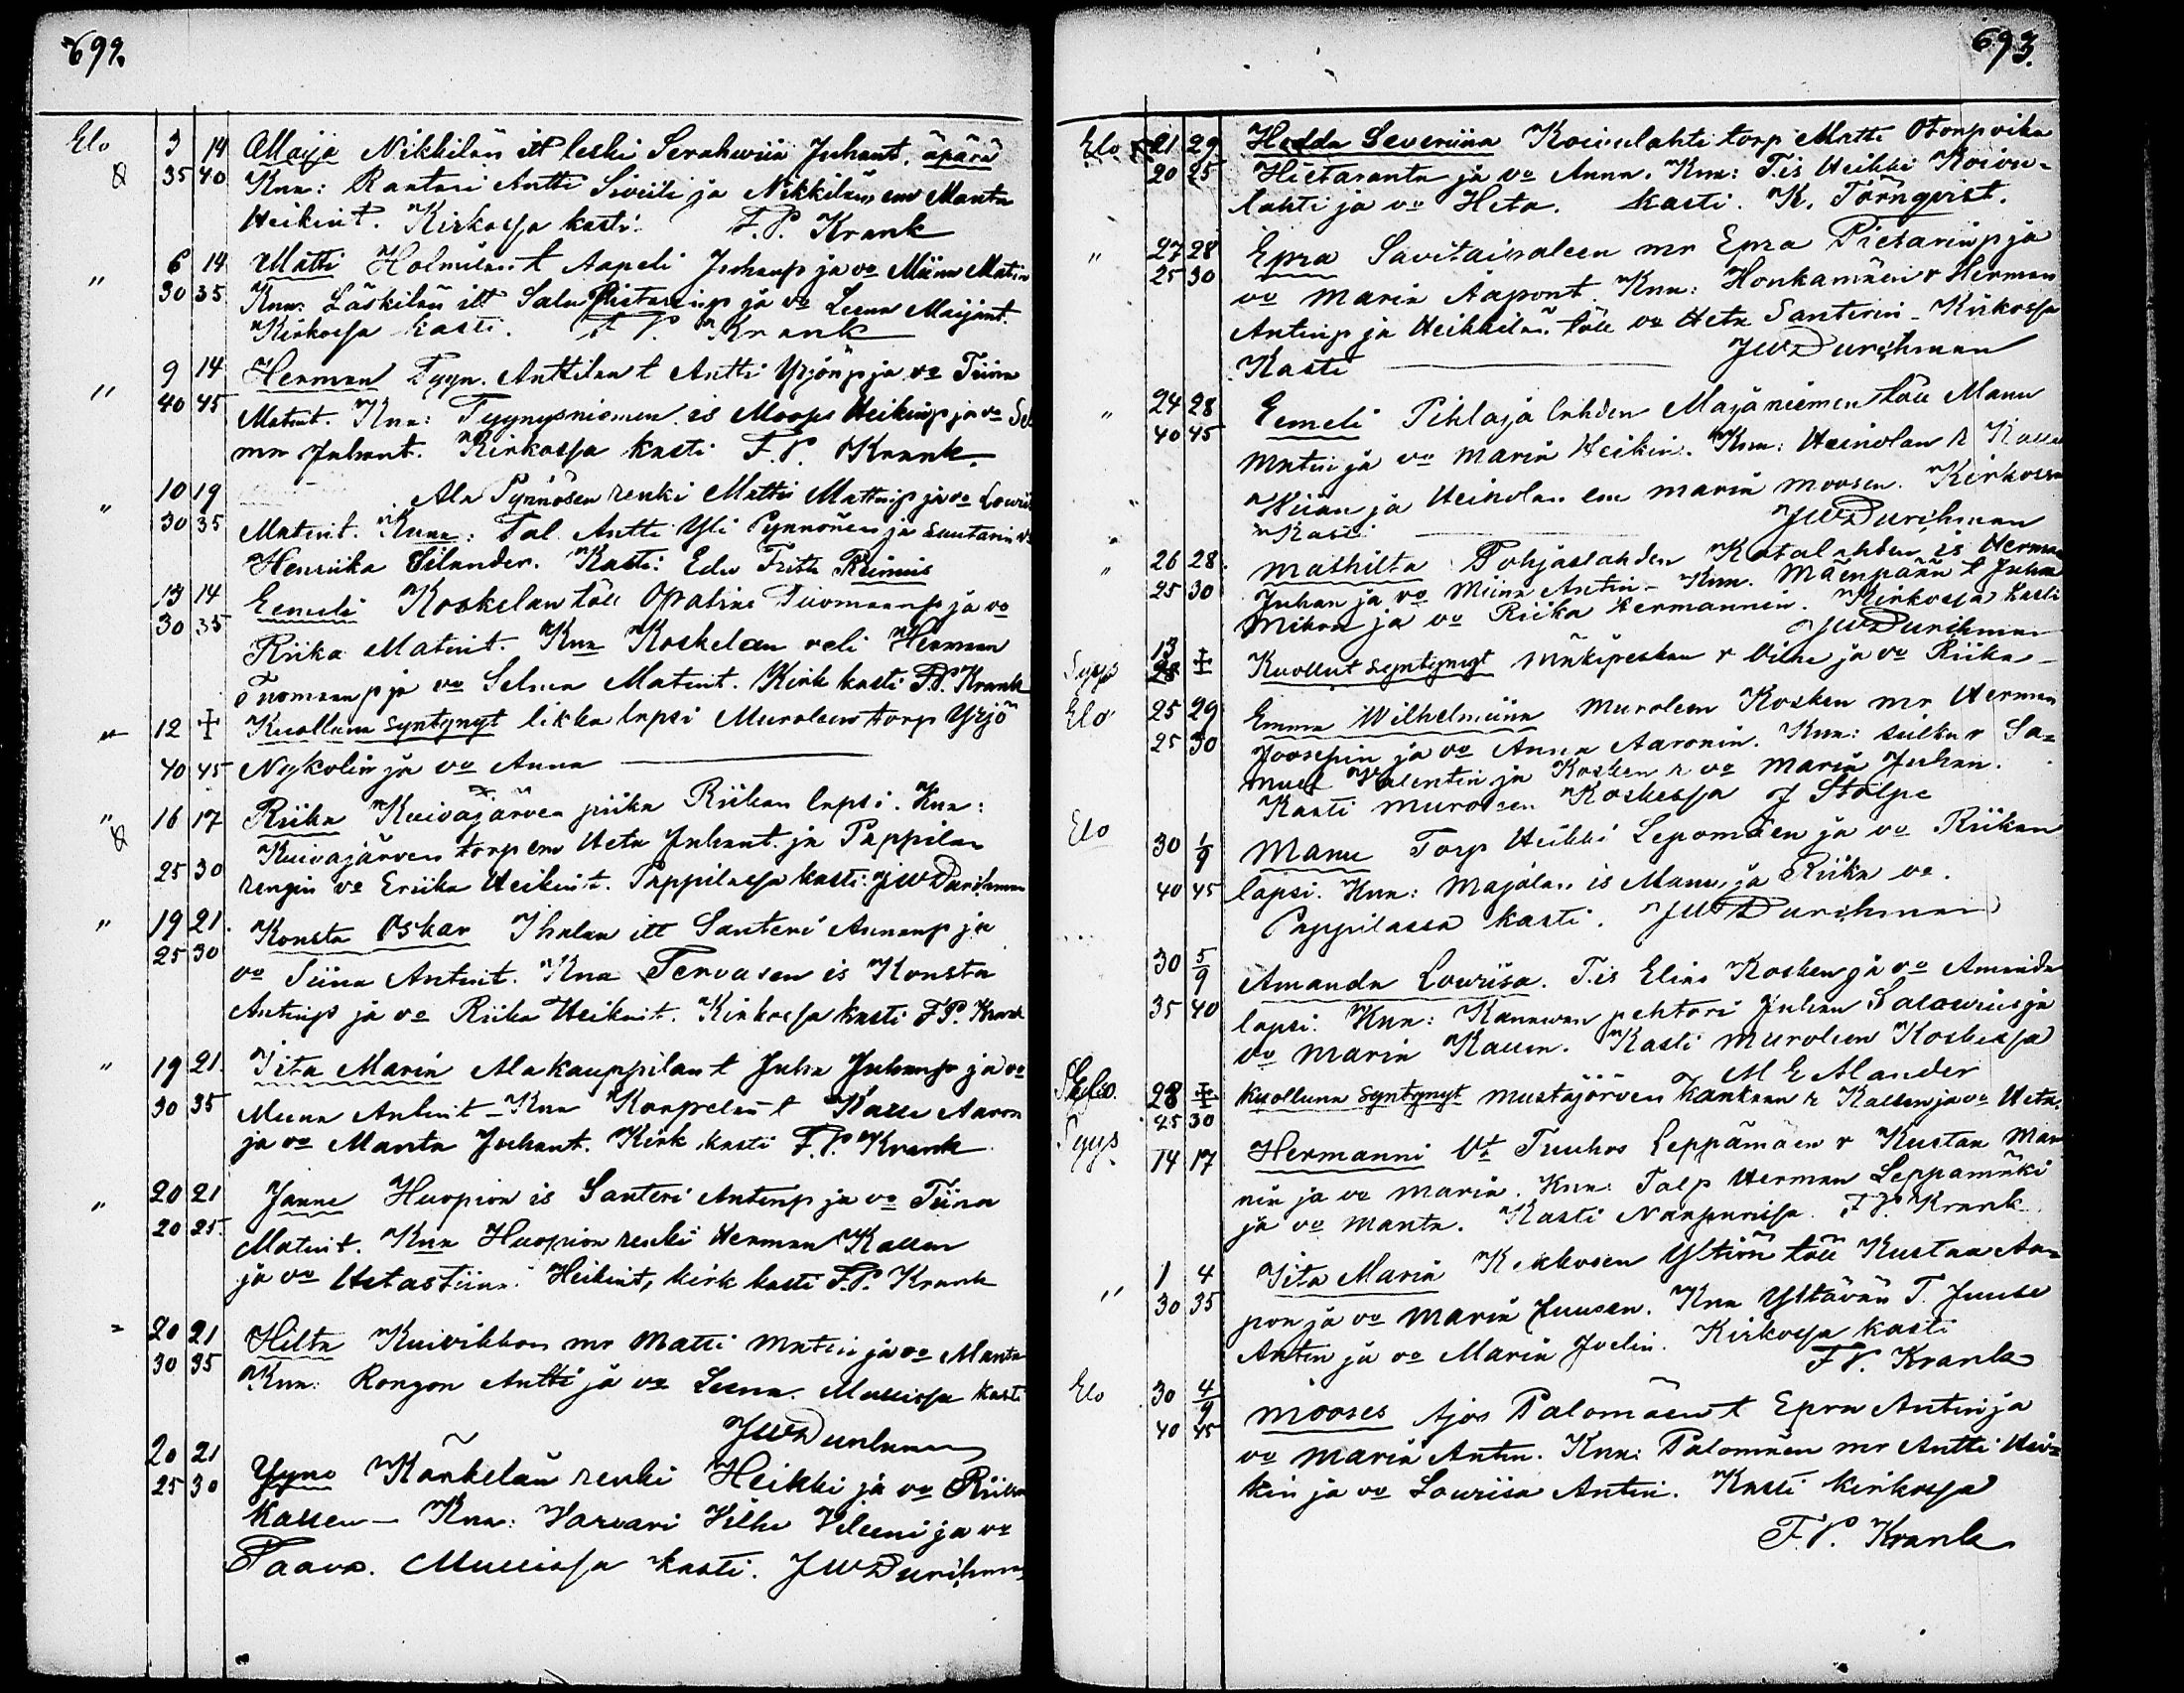 692.
Elo 3 14 Maija Nikkilän itt leski Serahwiia Juhant. äpärä
35 40 Knn: Rantasi Antti Siviili ja Nikkilän em Manta
Heikint. Kirkossa kasti. F.P. Krank
" 6 14 Matti Holmilan t Aapeli Juhanp ja vo Miina Matin
30 35 Knn. Läskilän itt Salu Pietarinp ja vo Leena Maijant.
Kirkossa kasti. F P. Krank
" 9 14 Herman Tyyn. Anttilan t Antti Yrjönp ja vo Tiina
40 45 Matint. Knn: Tyynysniemen is Moses Heikinp ja vo
mr Juhant. Kirkossa kasti F.P. Krank.
" 10 19 Ala Pynnösen renki Matti Mattinp ja vo Lowiis
30 35 Matint. Knn: Tal. Antti Yli Pynnönen ja suutarin vo
Henriika Silander. Kasti: Edw Frith Reimius
13 14 Eemeli Koskelan töll Opatias Tuomaanp ja vo
30 35
Riika Matint. Knn Koskelan veli Herman
Tuomaanp ja vo Selma Matint. Kirk kasti F.P. Krank
" 12 ‡ Kuolluna syntynyt likka lapsi Muroleen torp Yrjö
40 45 Nykolin ja vo Anna
" 16 17 Riika Kuivajärven piika Riikan lapsi. Knn:
Kuivajärven torp em Heta Juhant. ja Pappilan
25 30 rengin vo Eriika Heikint. Pappilassa kasti: JW Durchman
" 19 21. Konsta Oskar Ihalan itt Santeri Annanp ja
25 30
vo Siina Antint. Knn Tervasen is Konsta
Antinp ja vo Riika Heikint. Kirkossa kasti F.P. Krank
" 19 21. Iita Maria Alakauppilan t Juha Juhanp ja vo
30 35 Miina Antint - Knn Karpelan t Kalle Aaron
ja vo Manta Juhant. Kirk kasti F.P. Krank
" 20 21 Janne Huopion is Santeri Antinp ja vo Tiina
20 25. Matint. Knn Huopion renki Herman Kallen
ja vo Hetastiina Heikint, kirk kasti F.P. Krank
" 20 21 Hilta Kuivikkon mr Matti Matin ja vo Manta
30 35 Knn: Rongon Antti ja vo Leena. Muussa kasti
JW Durchman
20 21 Yyno Kärkelän renki Heikki ja vo Riikka
25 30
Kallen - Knn: Harvari Vilhe Vileeni ja vo
Taava. Muussa kasti. JW Durchman
693.
Elo 21 29 Hedda Severiina Koivulahti torp Matti Otonp vika
20 25 Hietaranta ja vo Anna. Knn: T.is Heikki Koivu-
lahti ja vo Heta. kasti. K. Törnqvist.
" 27 28 Epra Savitaipaleen mr Epra Pietarinp ja
25 30
vo Maria Aapont. Knn: Honkamäen r Herman
Antinp ja Heikkilän töll vo Heta Santerin - Kirkossa
Kasti JW Durchman
" 24 28 Eemeli Pihlajalahden Majaniemen töll Manu
40 45
Matin ja vo Maria Heikin. Knn: Heinolan r Kalle
Wiian ja Heinolan em Maria Moosen. Kirkossa
Kasti JW Durchman
" 26 28. Mathilta Pohjaslahden Katalahden is Herman
25 30 Juhan ja vo Miina Antin - Knn. Mäenpään t Juha
Mikon ja vo Riika Hermannin. Kirkossa kasti
JW Durchman
Syys 13 28 ‡ Kuollut syntynyt Mäkipeskan r Vilhe ja vo Riika -
Elo 25 29 Emma Wilhelmiina Muroleen Kosken mr Herman
25 30 Joosepin ja vo Anna Aaronin. Knn: sulku r Sa-
muel Valentin ja Kosken r vo Maria Juhan.
Kasti Muroleen Koskessa J Stålpe
Elo 30 1/9 Manu Torp Heikki Lepomäen ja vo Riikan
40 45 lapsi. Knn: Majalan is Manu ja Riika vo.
Pappilassa kasti. JW Durchman
30 5/9 Amanda Lowiisa. T.is Elias Kosken ja vo Amanda
35 40 lapsi. Knn: Kanavan pehtori Juhan Salowius ja
vo Maria Kallen. Kasti Muroleen Koskessa
M E Alander
Elo. 28 ‡ Kuolluna syntynyt Mustajärven Kankaan r Kallen ja vo Heta.
25 30
Syys 14 17 Hermanni Vt Tuuhos Leppämäen r Kustaa Man
nin ja vo Maria. Knn: Talp Herman Leppämäki
ja vo Manta. Kasti Naapurissa. F.P. Krank
" 1 4 Iita Maria Kekkosen Ylitiön töll Kustaa Aa-
30 35 pon ja vo Maria Juusen. Knn Ylitävän T. Juuse
Antin ja vo Maria Joelin. Kirkossa kasti
F.P. Krank
Elo 30 4/9 Mooses Ajos Palomäen t Epra Antin ja
40 45
vo Maria Antin. Knn: Palomäen mr Antti Hei-
kin ja vo Lowiisa Antin. Kasti kirkossa
F.P. Krank